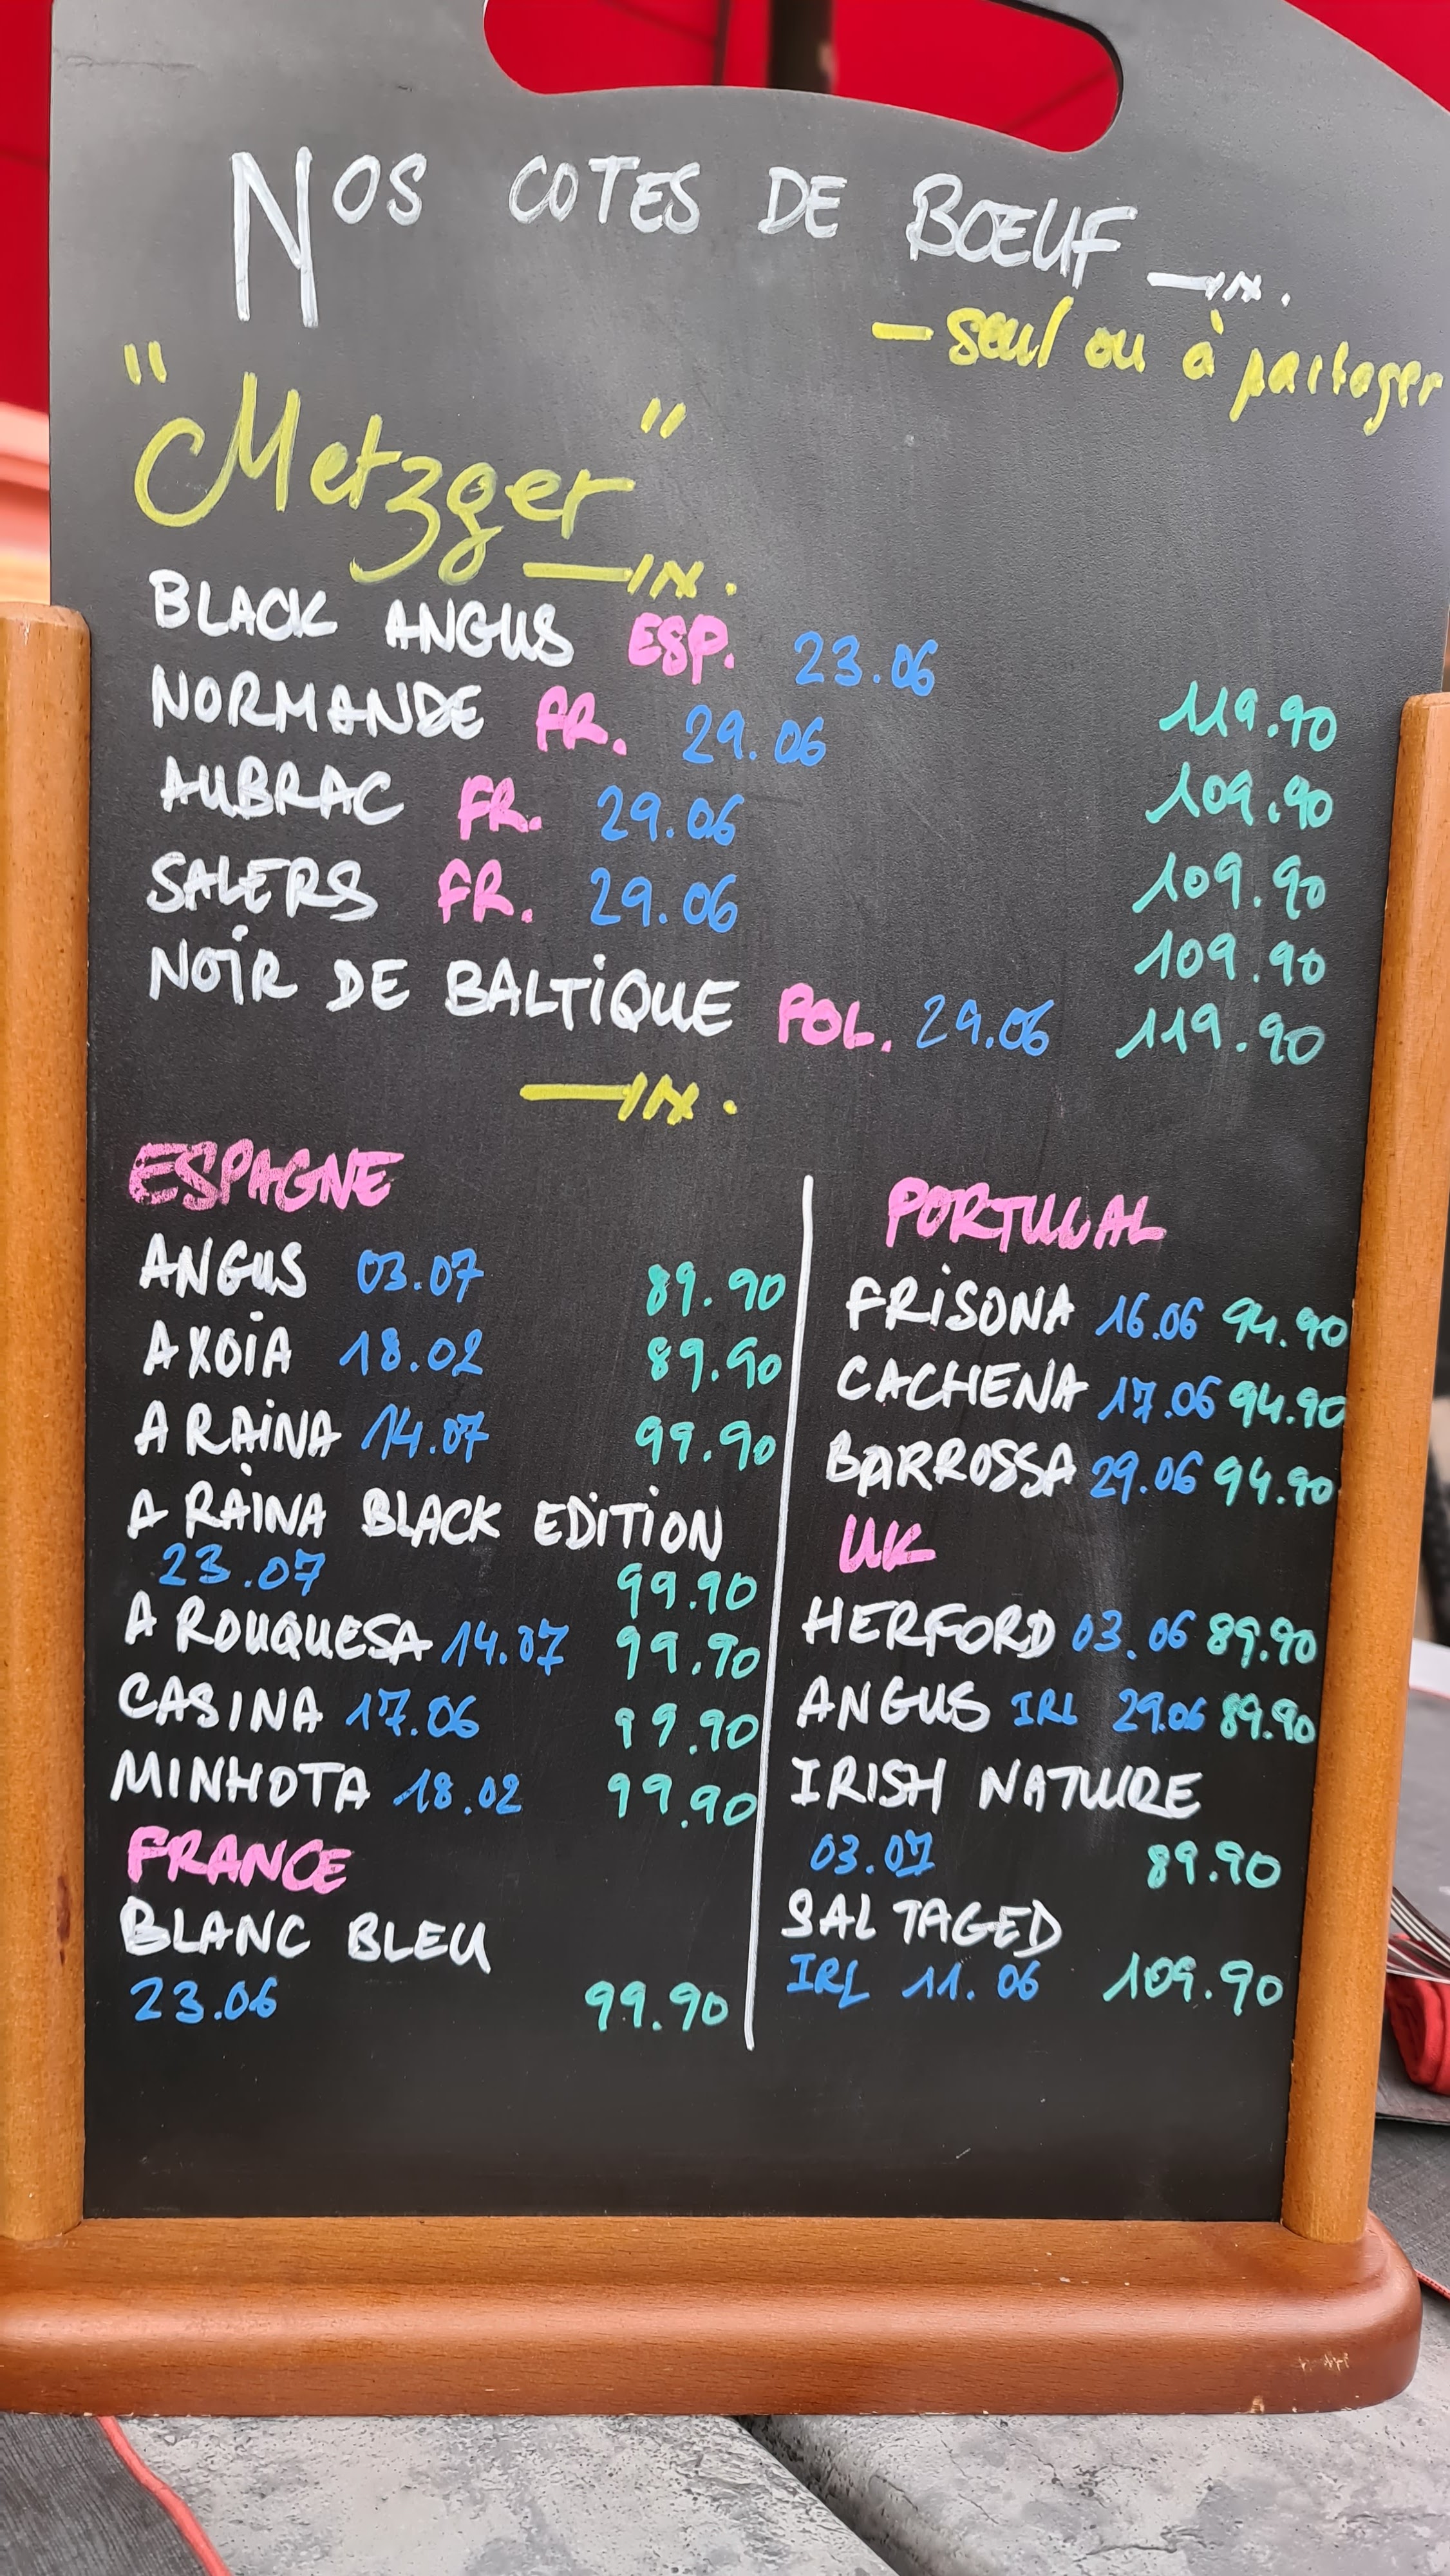 NOS COTES DE BŒUF
- seul ou à partager
"Metzger"
BLACK ANGUS ESP. 23.06 119.90
NORMANDE FR. 29.06 109.90
AUBRAC FR. 29.06 109.90
SALERS FR. 29.06 109.90
NOIR DE BALTIQUE POL. 29.06 119.90
ESPAGNE
ANGUS 03.07 89.90
AXOIA 18.02 89.90
A RAINA 14.07 99.90
A RAINA BLACK EDITION
23.07 99.90
A ROUQUESA 14.07 99.90
CASINA 17.06 99.90
MINHOTA 18.02 99.90
FRANCE
BLANC BLEU
23.06 99.90
PORTUGAL
FRISONA 16.06 94.90
CACHENA 17.06 94.90
BARROSSA 29.06 94.90
UK
HERFORD 03.06 89.90
ANGUS IRL 29.06 89.90
IRISH NATURE
03.07 89.90
SALTAGED
IRL 11.06 109.90